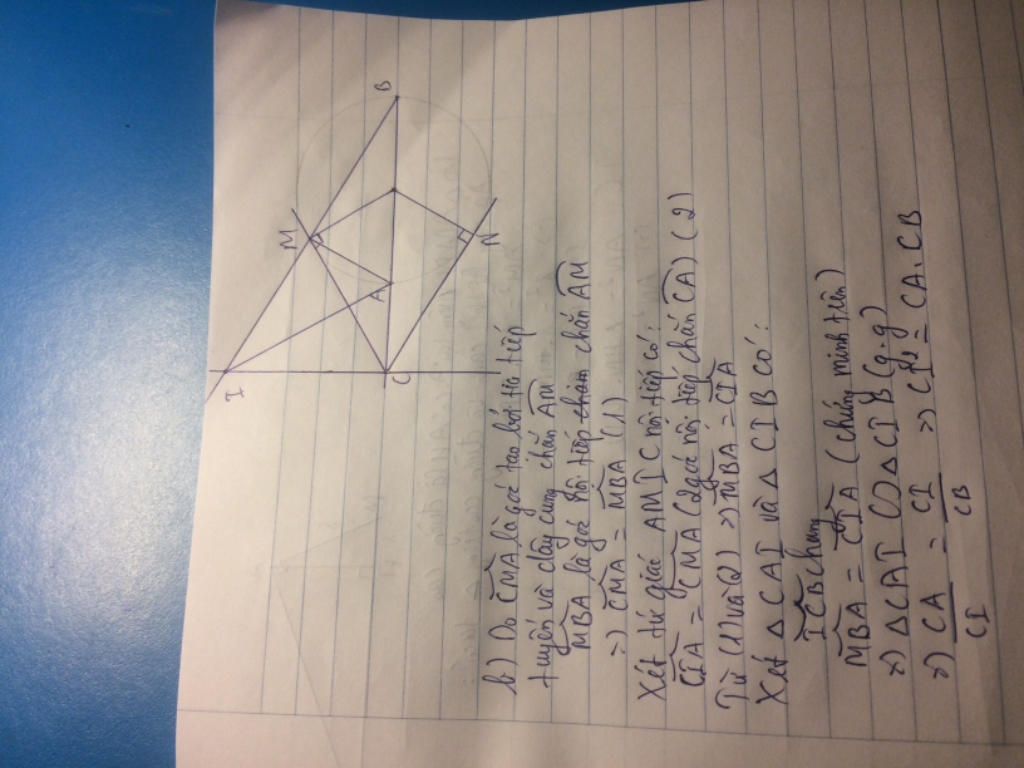 I
M
B
A
C
N
b) Do CMA là góc tạo bởi tia tiếp
tuyến và dây cung chắn AM
MBA là góc nội tiếp chắn AM
=> CMA = MBA (1)
Xét tứ giác AMIC nội tiếp có:
CIA = CMA (2 góc nội tiếp chắn CA) (2)
Từ (1) và (2) => MBA = CIA
Xét Δ CAI và Δ CIB có:
ICB chung
MBA = CIA (chứng minh trên)
=> ΔCAI ∽ Δ CIB (g.g)
=> CA/CI = CI/CB => CI² = CA.CB